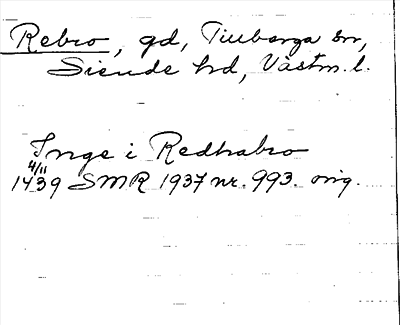 Rebro, gd, Tillberga sn,
Siende hd, Västm. l.
Inge i Redhabro
4/11
1439 SMR 1937 nr. 993. orig.